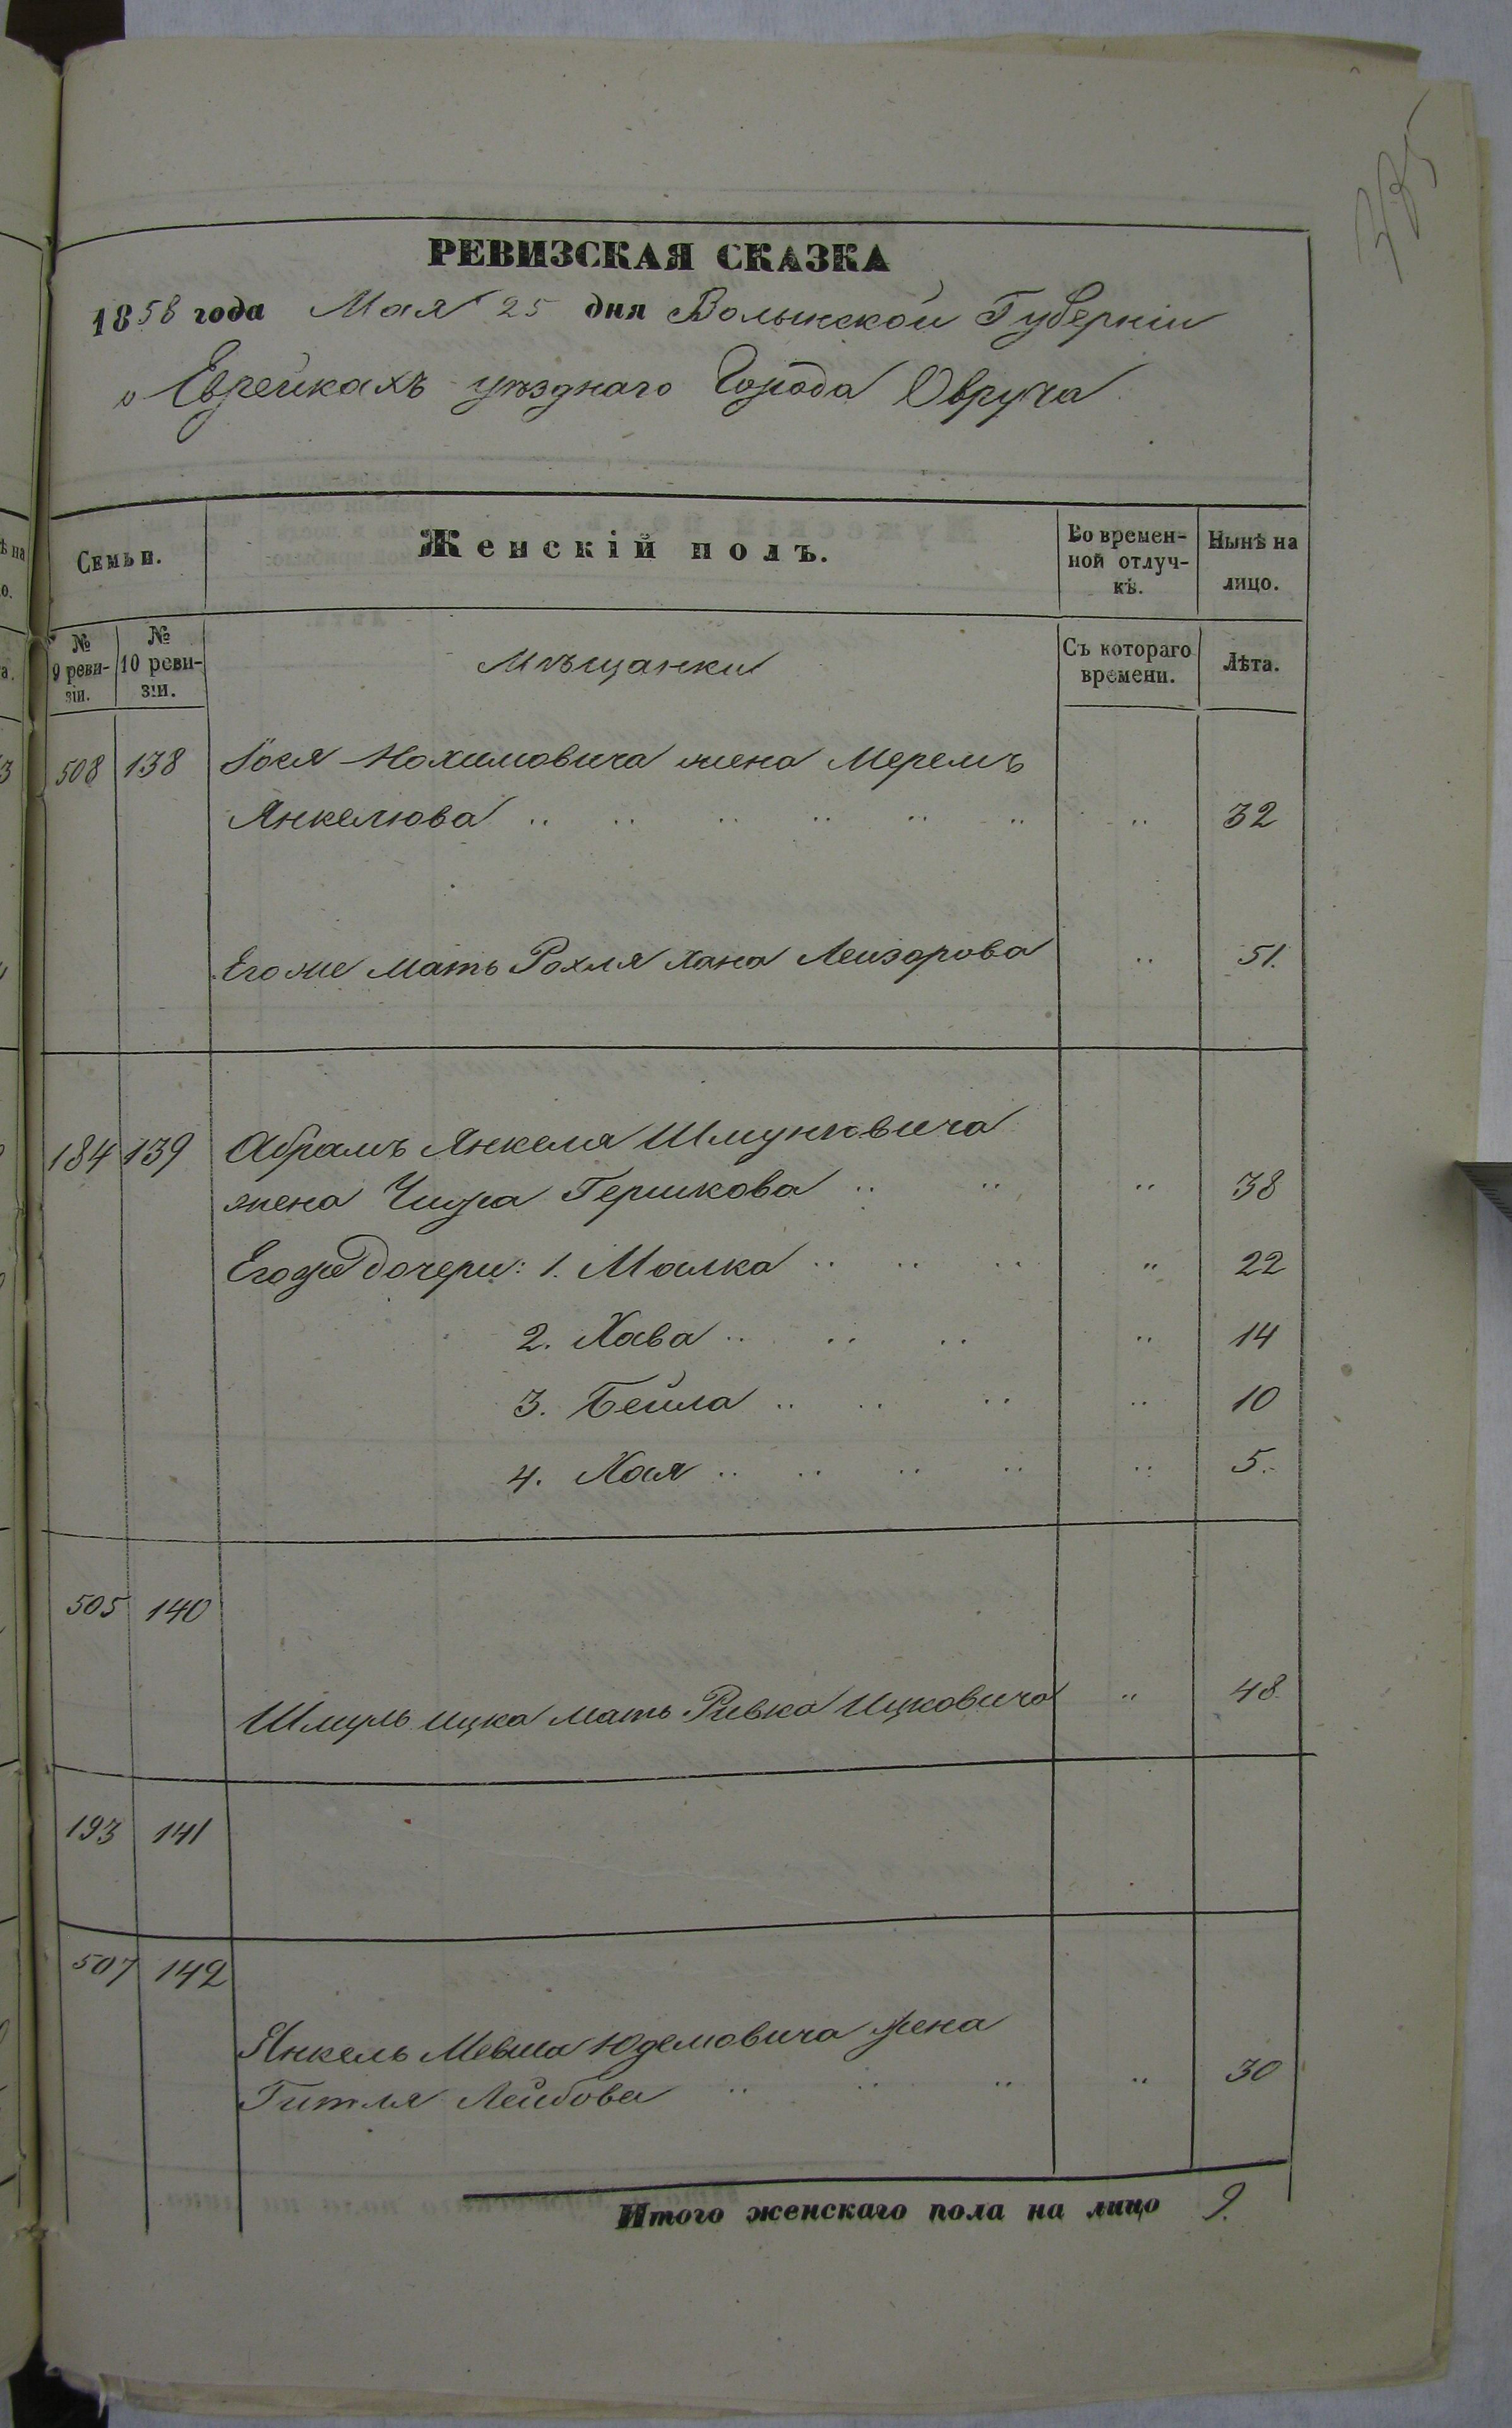 335
РЕВИЗСКАЯ СКАЗКА
1858 года Мая 25 дня Волынской Губерніи
о Еврейкахъ уѣзднаго Города Овруча
Семьи.
Женскій полъ.
Во времен-
ной отлуч-
кѣ.
Нынѣ на
лицо.
№
9 реви-
зіи.
№
10 реви-
зіи.
Мѣщанки
Съ котораго
времени.
Лѣта.
508 138 Іося Нохимовича жена Меремъ
Янкелюва 32
Егоже мать Рохля Хана Леизорова 51.
184 139 Абрамъ Янкеля Шмунковича
жена Чипра Гершкова 38
Егоже дочери: 1. Малка 22
2. Хава 14
3. Бейла 10
4. Хая 5.
505 140
Шмуль Ицка мать Ривка Ицковича 48.
193 141
507 142
Янкель Мевша Юделовича жена
Гитля Лейбова 30
Итого женскаго пола на лицо 9.